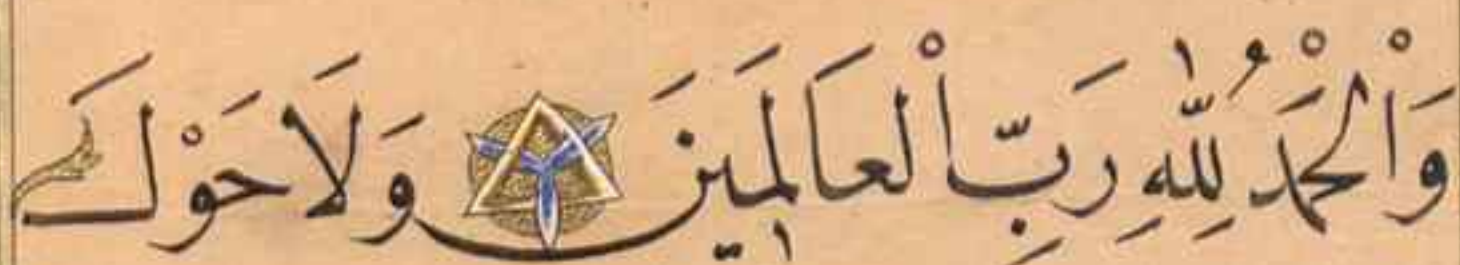 وَالْحَمْدُ لِلّٰهِ رَبِّ الْعَالَمِينَ وَلَا حَوْلَ